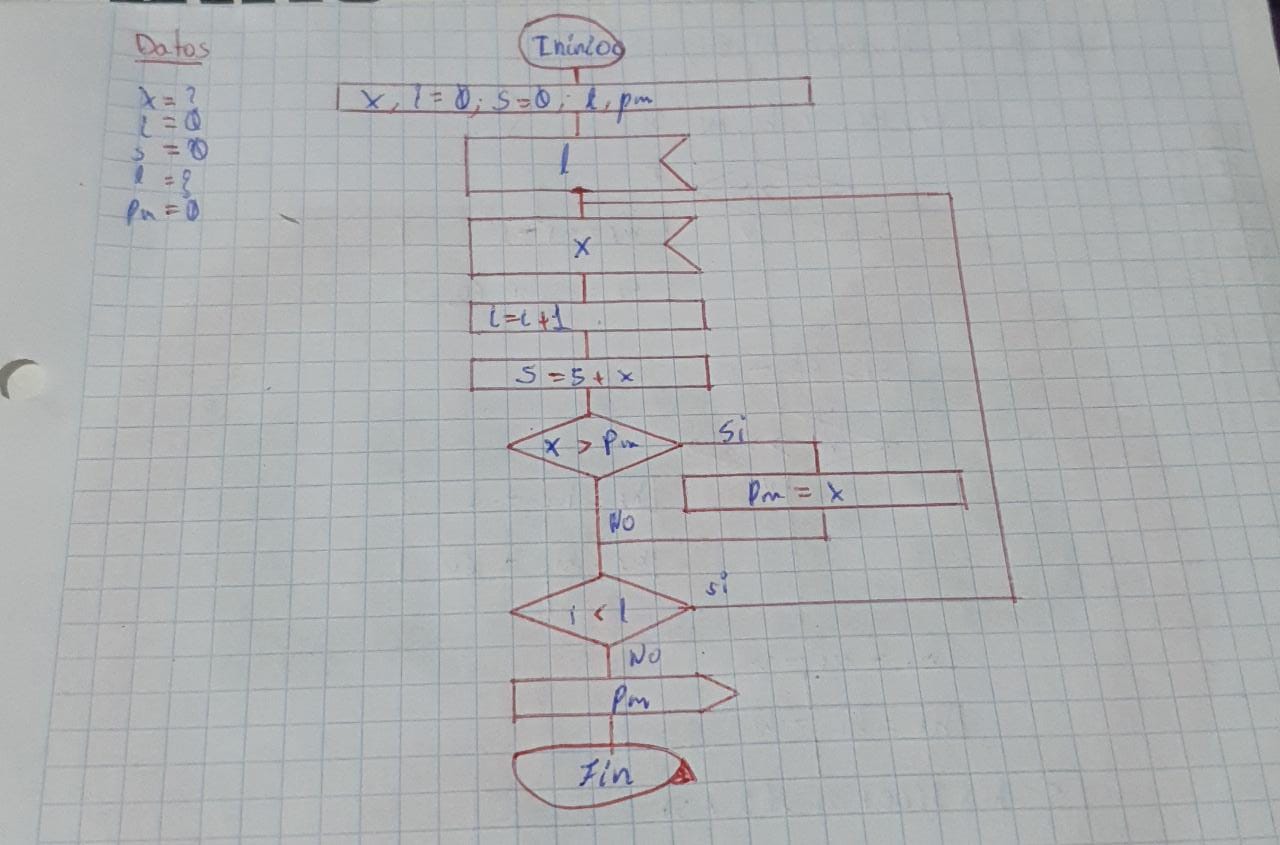 Datos
x = ?
i = 0
s = 0
l = ?
pm = 0
Ininioo
x, i = 0; s = 0; l, pm
l
x
i = i + 1
s = s + x
x > pm
Si
pm = x
NO
i < l
si
NO
pm
Fin